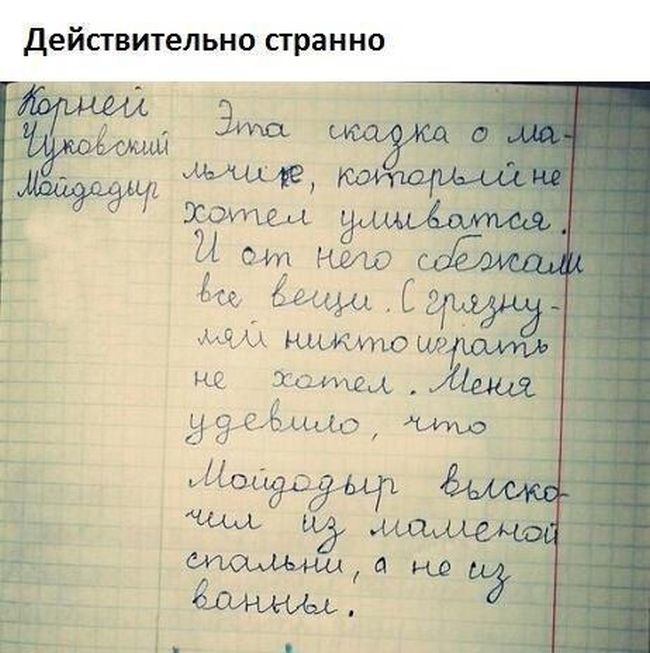 Действительно странно
Корней
Чуковский
Мойдодыр
Эта сказка о ма-
льчике, который не
хотел умыватся.
И от него сбежали
все вещи. С грязну-
лей никто играть
не хотел. Меня
удевило, что
Мойдодыр выско-
чил из маменой
спальни, а не из
ванны.